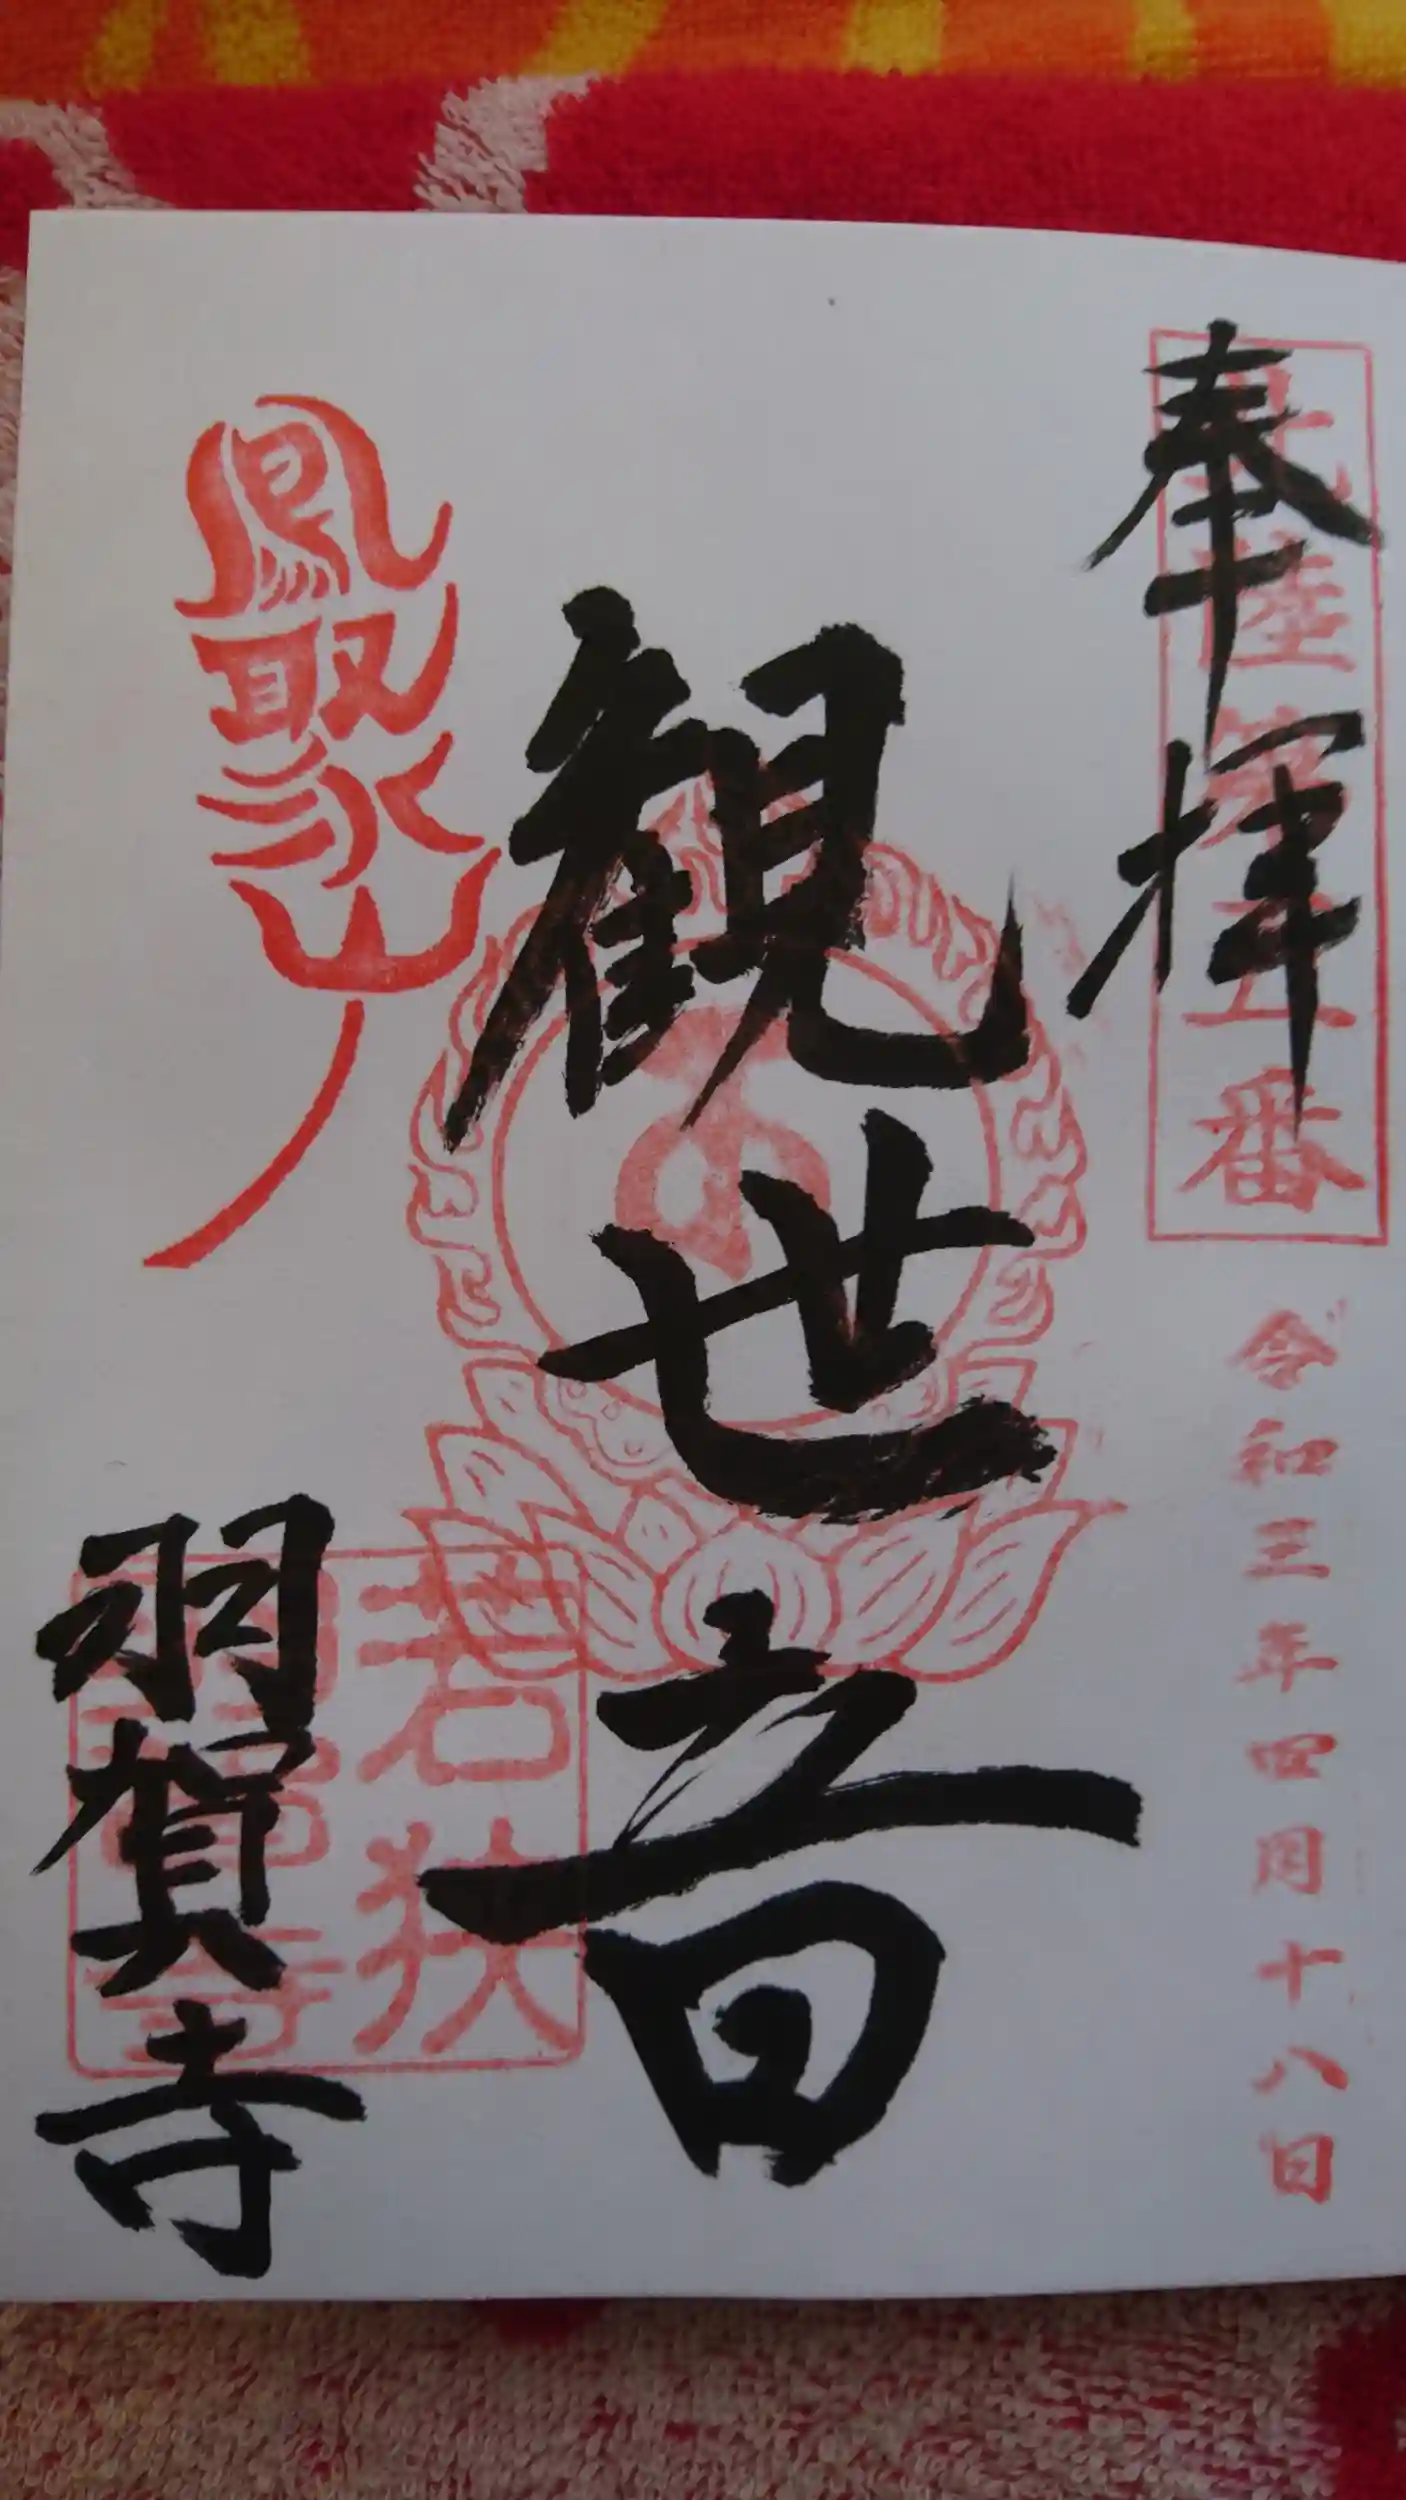 奉拝
北陸第五番
令和三年四月十八日
観世音
鳳聚山
若狭
羽賀寺